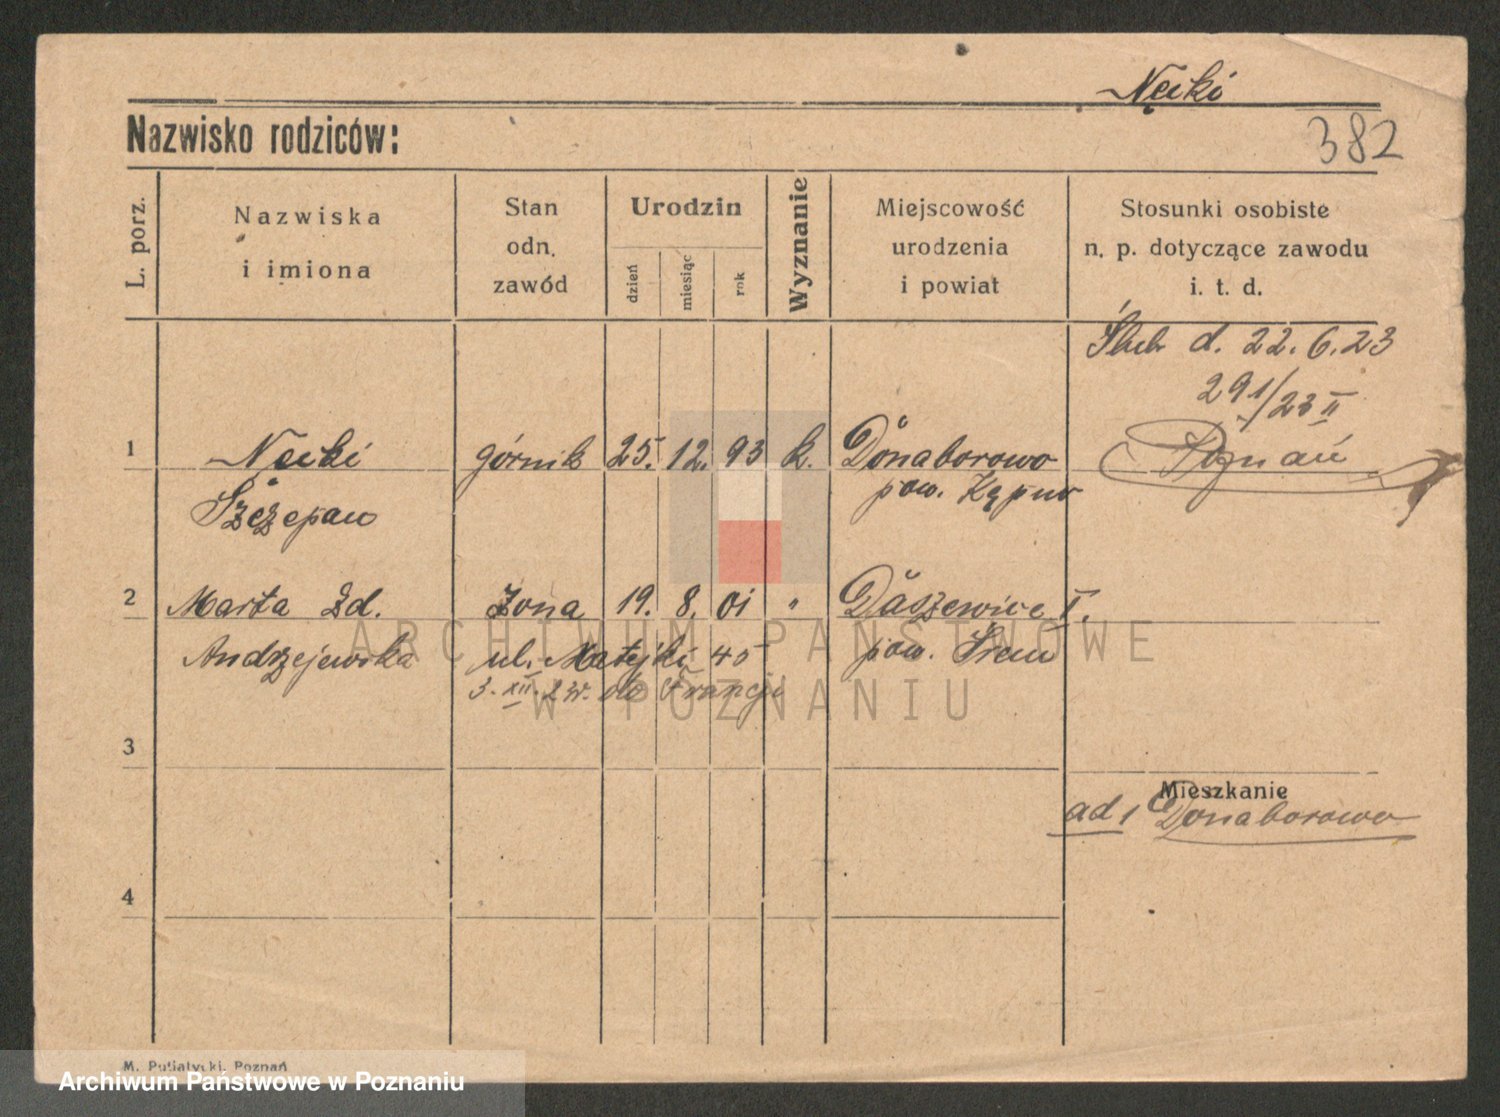 Nęcki
Nazwisko rodziców:
382
L. porz.
Nazwiska
i imiona
Stan
odn.
zawód
Urodzin
dzień
miesiąc
rok
Wyznanie
Miejscowość
urodzenia
i powiat
Stosunki osobiste
n. p. dotyczące zawodu
i. t. d.
Ślub d. 22. 6. 23
291/23 II
Poznań
1 Necki górnik 25. 12. 93 k. Donaborowo
Szczepan pow. Kępno
2 Marta zd. żona 19. 8. 01 " Daszewice I.
Andrzejewska ul. Matejki 45 pow. Śrem
3. XII. do Francji
3
Mieszkanie
ad 1 Donaborowo
4
M. Putiatycki, Poznań
ARCHIWUM PAŃSTWOWE
W POZNANIU
Archiwum Państwowe w Poznaniu